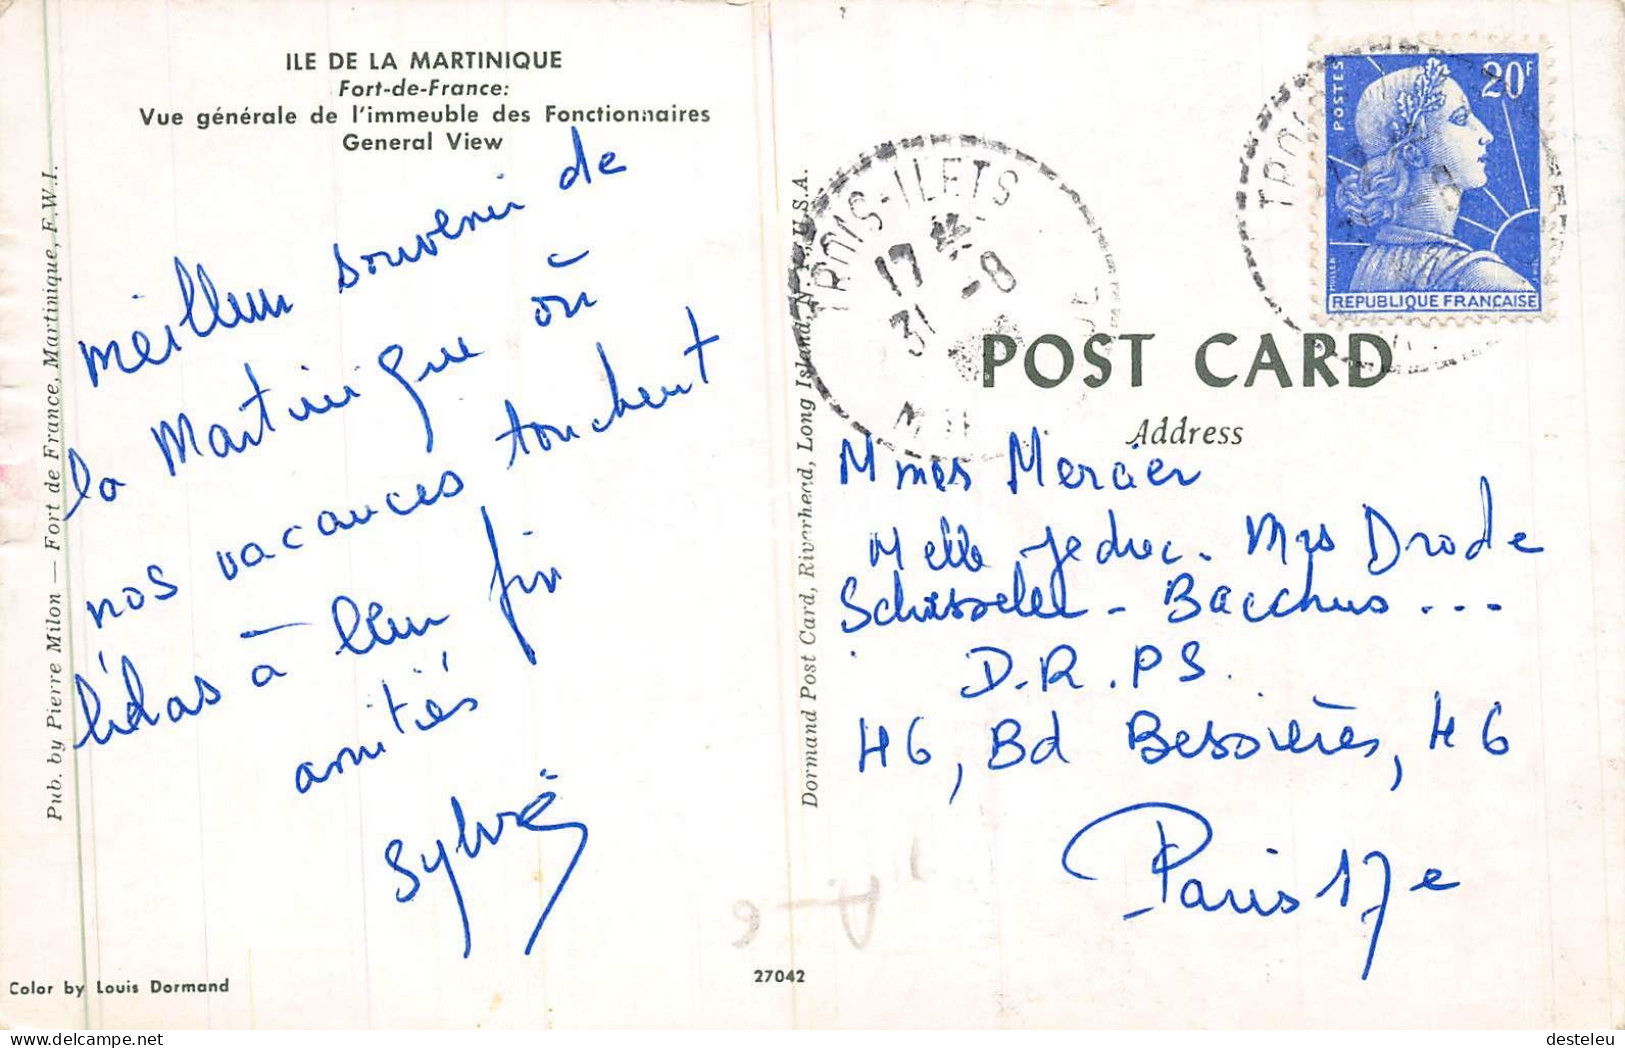 ILE DE LA MARTINIQUE
Fort-de-France:
Vue générale de l'immeuble des Fonctionnaires
General View
meilleur souvenir de
la Martinique où
nos vacances touchent
hélas à leur fin
amitiés
Sylvie
Pub. by Pierre Milon — Fort de France, Martinique, F.W.I.
Color by Louis Dormand
27042
Dormand Post Card, Riverhead, Long Island, N.Y., U.S.A.
TROIS-ILETS
17 *
31 -8
POSTES
20F
MULLER
REPUBLIQUE FRANÇAISE
POST CARD
Address
Mmes Mercier
Melle Jeduc - Mrs Drode
- Bacchus ...
D.R.P.S.
46, Bd Bessières, 46
Paris 17e
A-6
desteleu